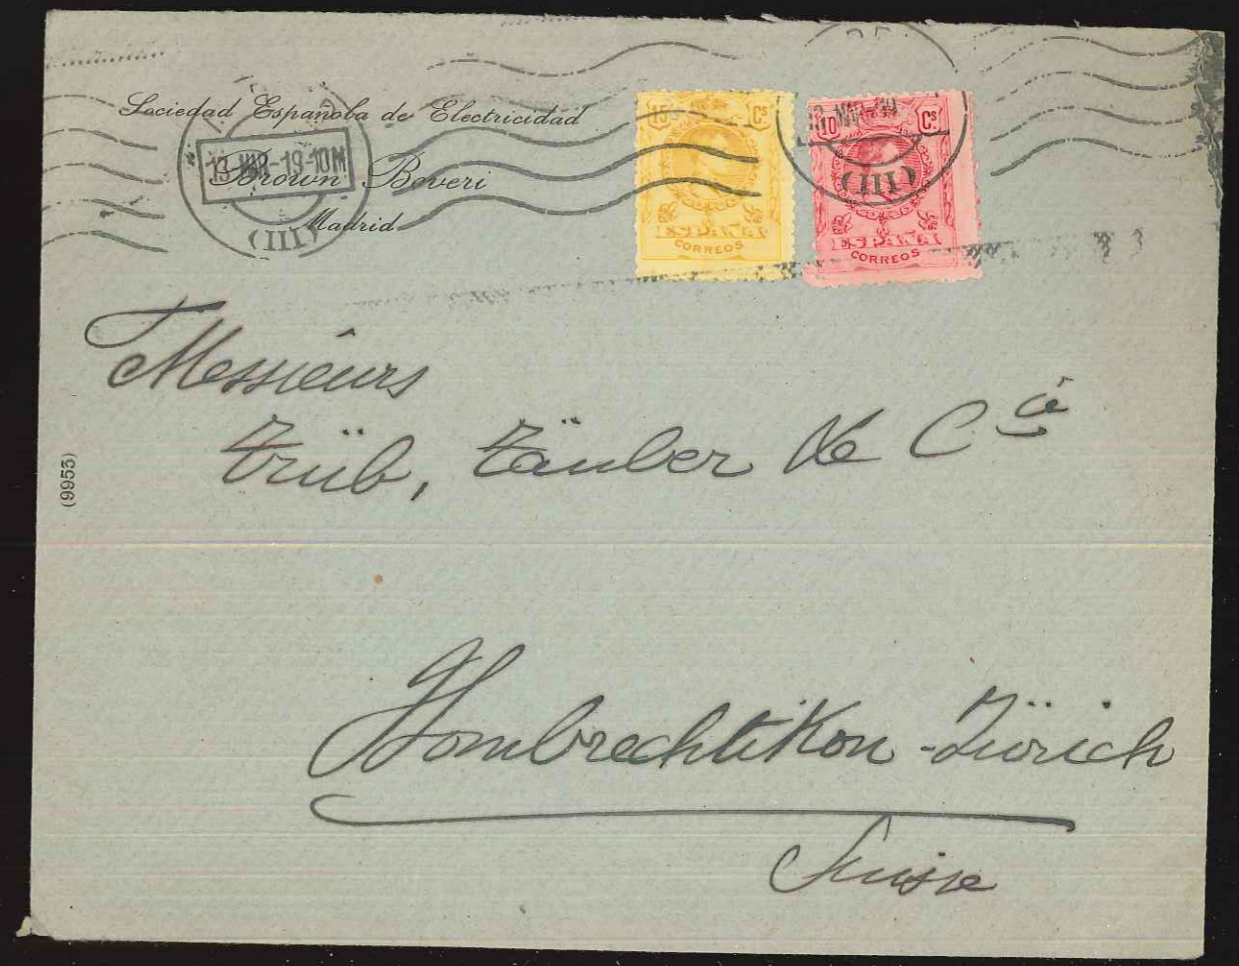 Sociedad Española de Electricidad
Brown Boveri
Madrid
13 MAR-19-10M
(III)
15 Cs
ESPAÑA
CORREOS
10 Cs.
(III)
ESPAÑA
CORREOS
Messieurs
Trüb, Täuber & Cie
(9953)
Hombrechtikon-Zürich
Suisse